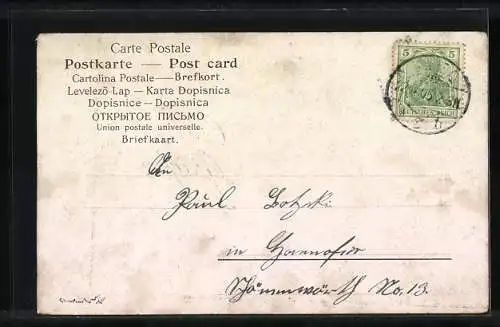 Carte Postale
Postkarte — Post card
Cartolina Postale — Brefkort.
Levelező-Lap — Karta Dopisnica
Dopisnice — Dopisnica
ОТКРЫТОЕ ПИСЬМО
Union postale universelle.
Briefkaart.
5 5
DEUTSCHES REICH
An
Paul
in Hannover
No. 13.